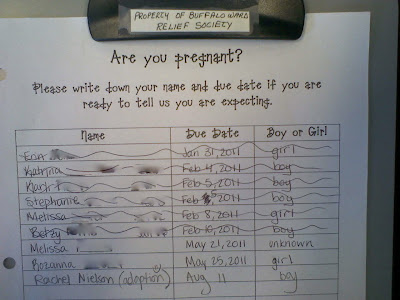 PROPERTY OF BUFFALO WARD
RELIEF SOCIETY
Are you pregnant?
Please write down your name and due date if you are
ready to tell us you are expecting.
Name Due Date Boy or Girl
Jan 31, 2011 girl
Katrina Feb 4, 2011 boy
Feb 5, 2011 boy
Stephanie Feb 5, 2011 boy
Melissa Feb 8, 2011 girl
Betzy Feb 10, 2011 boy
Melissa May 21, 2011 unknown
Rozanna May 25, 2011 girl
Rachel Nielson (adoption) Aug 11 boy